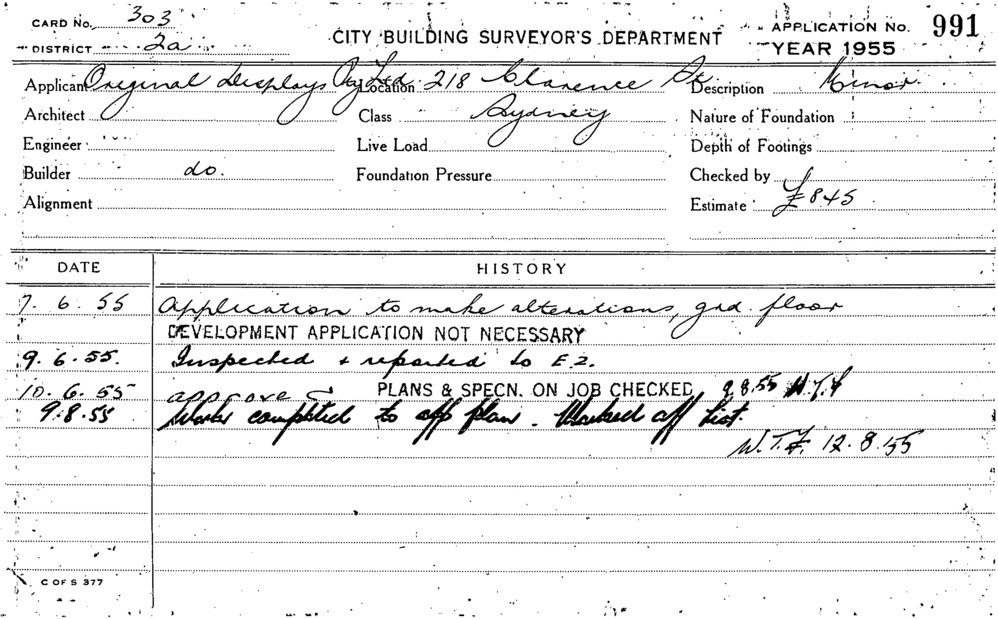 CARD No. 303
DISTRICT 2a
CITY BUILDING SURVEYOR'S DEPARTMENT
APPLICATION No. 991
YEAR 1955
Applicant Original Displays Pty Ltd. Location 218 Clarence St Description Minor
Architect Class Sydney Nature of Foundation
Engineer Live Load Depth of Footings
Builder do. Foundation Pressure Checked by
Alignment Estimate £845
DATE HISTORY
7. 6. 55 Application to make alterations, grd. floor
DEVELOPMENT APPLICATION NOT NECESSARY
9. 6. 55. Inspected & reported to E.2.
10. 6. 55 approved PLANS & SPECN. ON JOB CHECKED 9.8.55 W.T.F
9.8.55 Works completed to app plan. Marked off list.
W.T.F. 12.8.55
C OF S 377